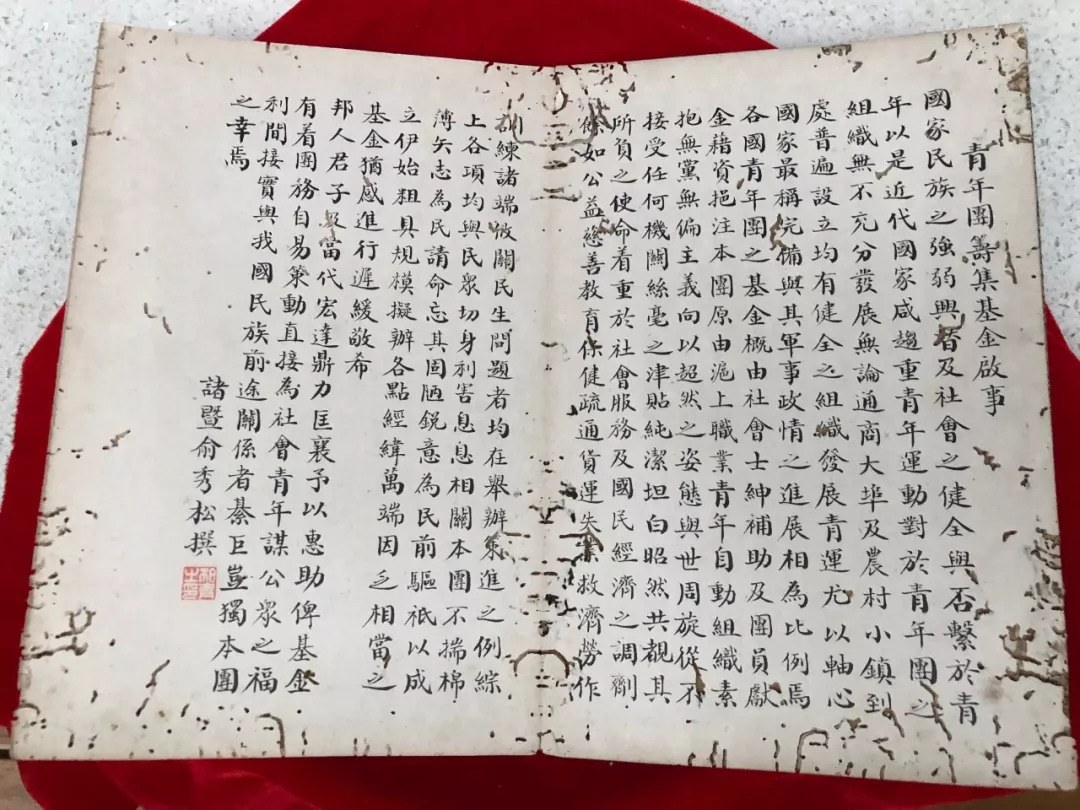 青年團籌集基金啟事
國家民族之強弱興替及社會之健全與否繫於青
年以是近代國家咸趨重青年運動對於青年團之
組織無不充分發展無論通商大埠及農村小鎮到
處普遍設立均有健全之組織發展青運尤以軸心
國家最稱完備與其軍事政情之進展相為比例焉
各國青年團之基金概由社會士紳補助及團員獻
金藉資挹注本團原由滬上職業青年自動組織素
抱無黨無偏主義向以超然之姿態與世周旋從不
接受任何機關絲毫之津貼純潔坦白昭然共覩其
所負之使命着重於社會服務及國民經濟之調劑
條如公益慈善教育保健疏通貨運失業救濟勞作
訓練諸端攸關民生問題者均在舉辦策進之例綜
上各項均與民眾切身利害息息相關本團不揣棉
薄矢志為民請命忘其固陋銳意為民前驅祇以成
立伊始粗具規模擬辦各點經緯萬端因乏相當之
基金猶感進行遲緩敬希
邦人君子及當代宏達鼎力匡襄予以惠助俾基金
有着團務自易策動直接為社會青年謀公眾之福
利間接實與我國民族前途關係者綦巨豈獨本團
之幸焉
諸暨俞秀松撰